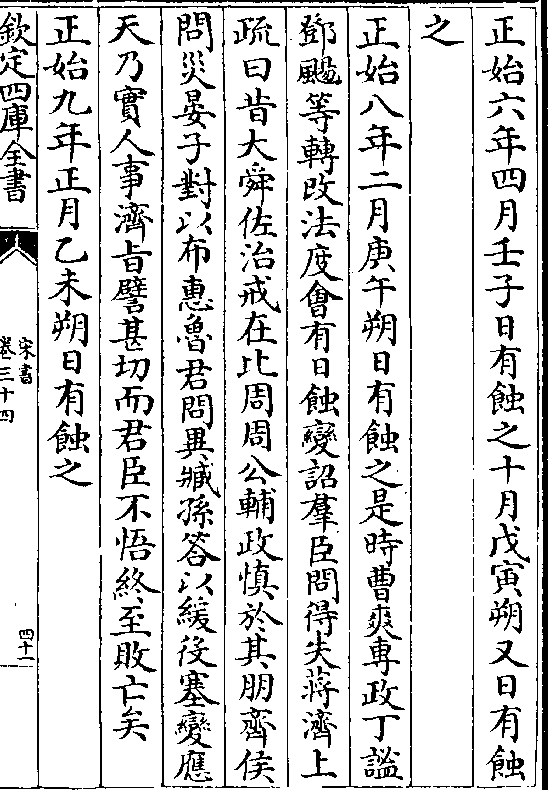 正始六年四月壬子日有蝕之十月戊寅朔又日有蝕
之
正始八年二月庚午朔日有蝕之是時曹爽專政丁謐
鄧颺等轉改法度會有日蝕變詔羣臣問得失蔣濟上
疏曰昔大舜佐治戒在比周周公輔政慎於其朋齊侯
問災晏子對以布惠魯君問異臧孫答以緩役塞變應
天乃實人事濟旨譬甚切而君臣不悟終至敗亡矣
正始九年正月乙未朔日有蝕之
欽定四庫全書
宋書
卷三十四
四十一